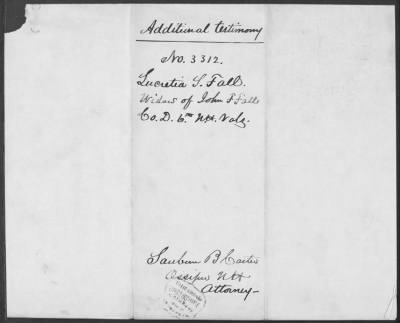 Additional testimony
No. 3312.
Lucretia S. Fall.
Widow of John F Fall
Co. D. 6th N.H. Vols.
Sanborn B Carter
Ossipee N H
Attorney-